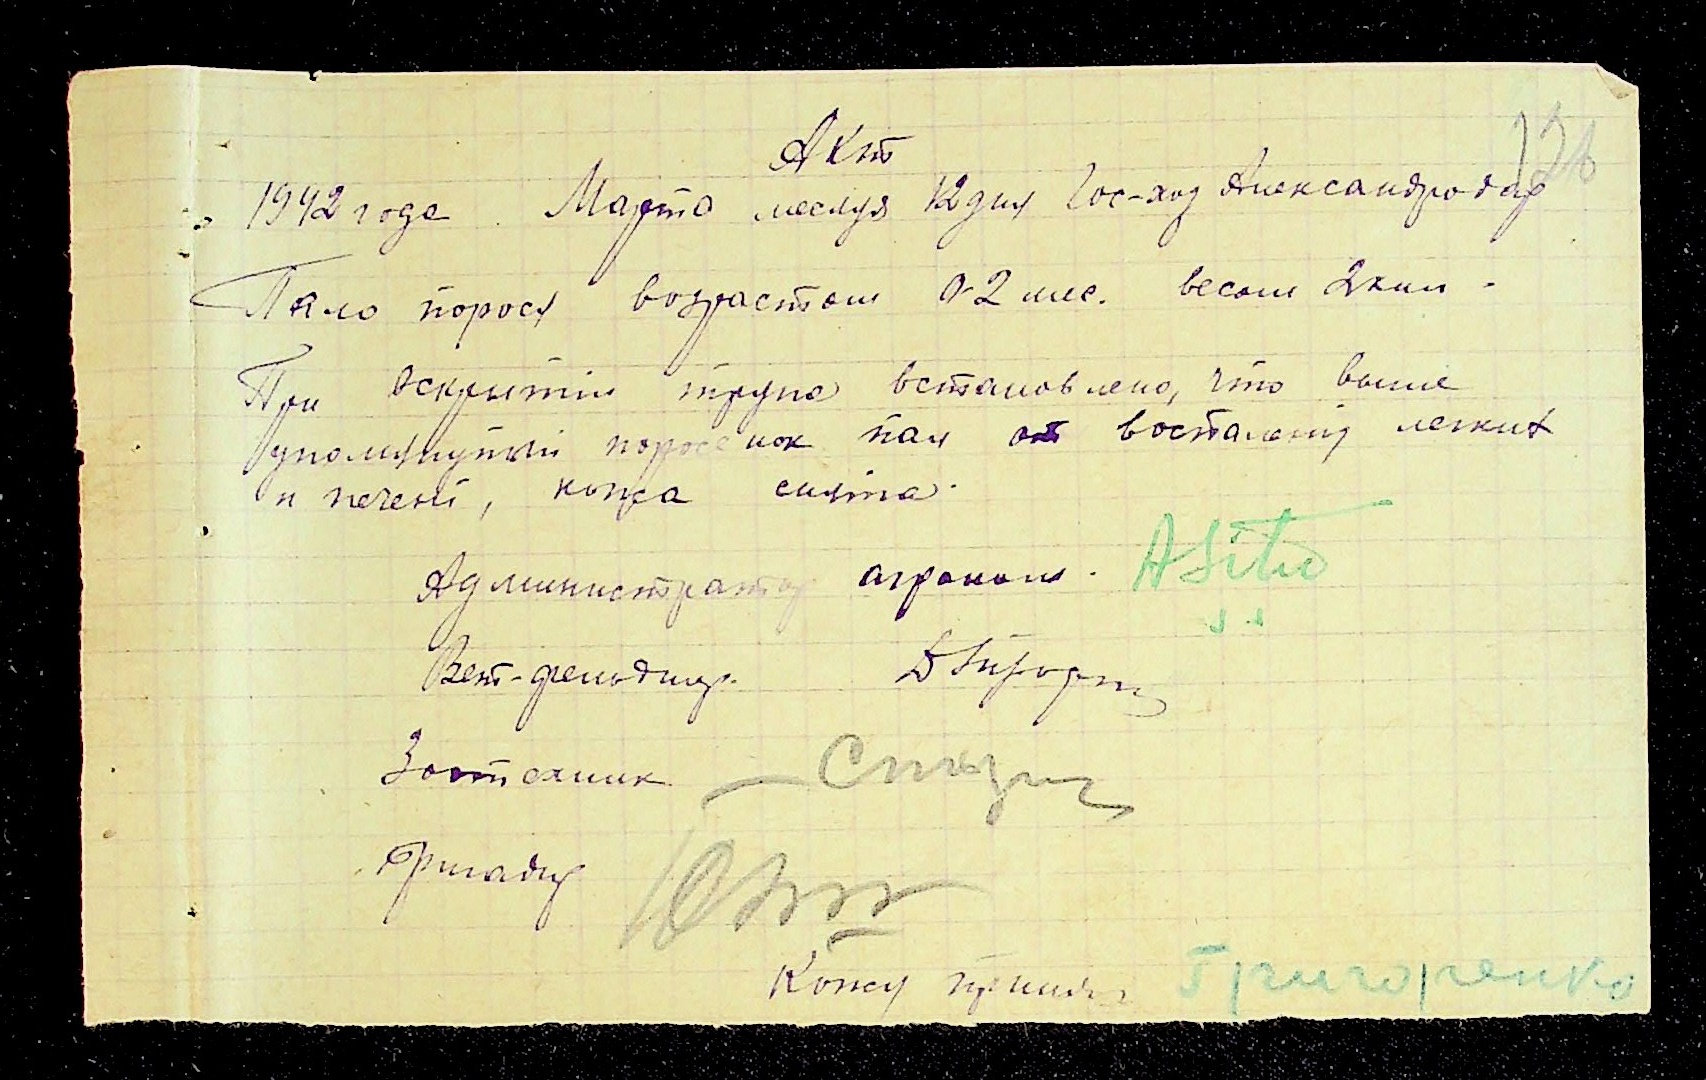 Акт
126
1942 года Марта месяця 12 дня Гос-ход Александродар
Пало порося возрастом 0-2 мес. весом 2 кил.
При вскрытии трупа встановлено, что выше
упомянутый поросенок пал от воспаления легких
и печені, кожа снята.
Администратор агроном.
Вет-фельдшер.
Зоотехник
Бригадир
Кожу принял Григоренко